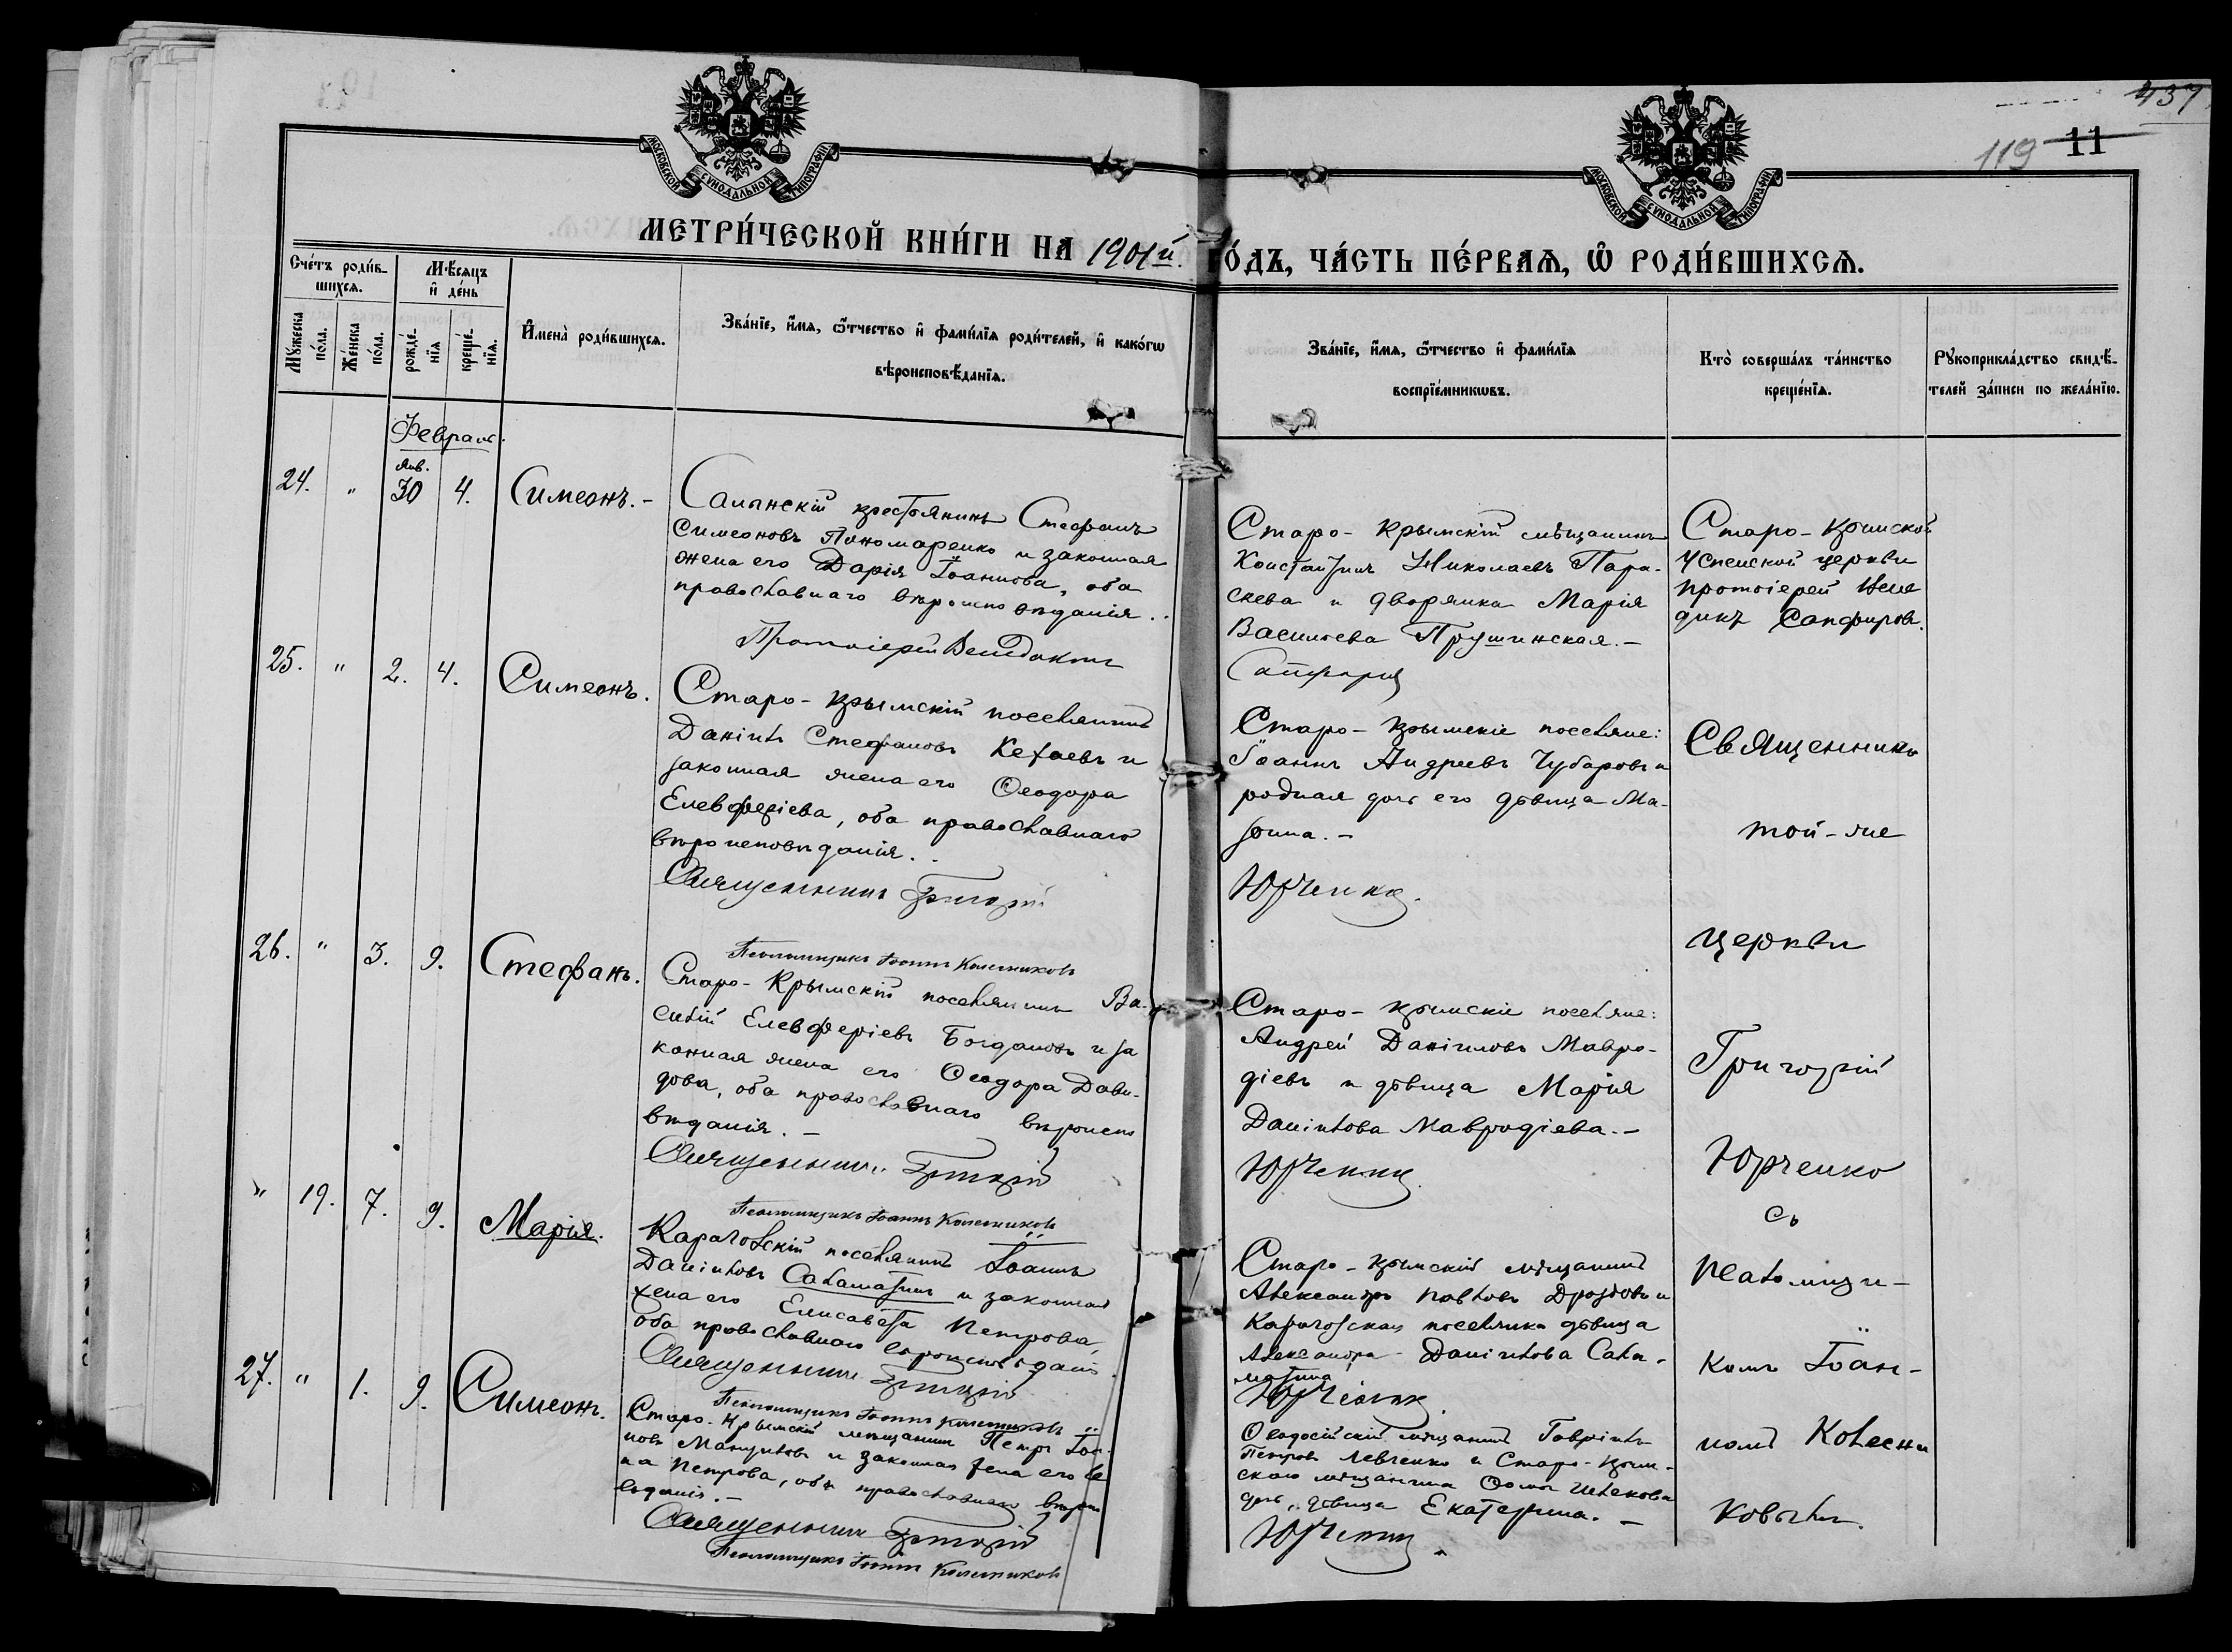 437
119 11
МОСКОВСКОЙ СѴНОДАЛЬНОЙ ТИПОГРАФІИ
МОСКОВСКОЙ СѴНОДАЛЬНОЙ ТИПОГРАФІИ
МЕТРИ́ЧЕСКОЙ КНИ́ГИ НА 1901й. ГО́ДЪ, ЧА́СТЬ ПЕ́РВАѦ, Ѡ҆ РОДИ́ВШИХСѦ.
Сче́тъ роди́в-
шихсѧ.
Мꙋ́жеска по́ла.
Же́нска по́ла.
Мѣ́сѧцъ
и҆ де́нь
рожде́-
нїѧ
креще́-
нїѧ.
И҆мена̀ роди́вшихсѧ.
Зва́нїе, и҆́мѧ, ѻ҆́тчество и҆ фами́лїѧ роди́телей, и҆ како́гѡ
вѣроисповѣ́данїѧ.
Зва́нїе, и҆́мѧ, ѻ҆́тчество и҆ фами́лїѧ
воспрїе́мникѡвъ.
Кто̀ соверша́лъ та́инство
креще́нїѧ.
Рꙋкоприкла́дство свидѣ́-
телей за́писи по жела́нїю.
Февраль.
24. " Янв. 30 4. Симеонъ.-
Салынскій крестьянинъ Стефанъ
Симеоновъ Пономаренко и законная
жена его Дарія Іоаннова, оба
православнаго вѣроисповѣданія..
Протоіерей Венедиктъ
Старо-Крымскій мѣщанинъ
Константинъ Николаевъ Пара-
скева и дворянка Марія
Васильева Прушинская.-
Сапфировъ
Старо-Крымской
Успенской церкви
протоіерей Вене
диктъ Сапфировъ.
25. " 2. 4. Симеонъ.
Старо-Крымскій поселянинъ
Даніилъ Стефановъ Кефаевъ и
законная жена его Ѳеодора
Елевѳеріева, оба православнаго
вѣроисповѣданія..
Священникъ Григорій
Старо-Крымскіе поселяне:
Іоаннъ Андреевъ Чубаровъ и
родная дочь его дѣвица Ма-
Юрченко.
Священникъ
той-же
церкви
Григорій
Юрченко
съ
псаломщи-
комъ Іоан-
номъ Колесни
ковымъ.
26. " 3. 9. Стефанъ.
Псаломщикъ Іоаннъ Колесниковъ
Старо-Крымскій поселянинъ Ва-
силій Елевѳеріевъ Богдановъ и за
конная жена его Ѳеодора Дави-
дова, оба православнаго вѣроиспо
вѣданія.-
Священникъ Григорій
Старо-Крымскіе поселяне:
Андрей Даніиловъ Мавро-
діевъ и дѣвица Марія
Даніилова Мавродіева.-
Юрченко
" 19. 7. 9. Марія.
Псаломщикъ Іоаннъ Колесниковъ
Карагозскій поселянинъ Іоаннъ
Даніиловъ Саламатинъ и законная
жена его Елисавета Петрова,
оба православнаго вѣроисповѣданія
Священникъ Григорій
Старо-Крымскій мѣщанинъ
Александръ Павловъ Дроздовъ и
Карагозская поселянка дѣвица
Александра Даніилова Сала-
матина
Юрченко.
27. " 1. 9. Симеонъ.
Псаломщикъ Іоаннъ Колесниковъ
Старо-Крымскій мѣщанинъ Петръ Іоан-
новъ и законная жена его
Петрова, оба православнаго вѣроиспо
вѣданія.-
Священникъ Григорій
Псаломщикъ Іоаннъ Колесниковъ
Ѳеодосійскій мѣщанинъ Гавріилъ
Петровъ Левченко и Старо-Крым-
скаго мѣщанина Ѳомы
дочь, дѣвица Екатерина.-
Юрченко